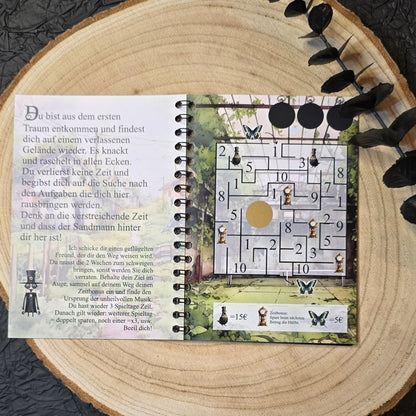 Du bist aus dem ersten
Traum entkommen und findest
dich auf einem verlassenen
Gelände wieder. Es knackt
und raschelt in allen Ecken.
Du verlierst keine Zeit und
begibst dich auf die Suche nach
den Aufgaben die dich hier
rausbringen werden.
Denk an die verstreichende Zeit
und dass der Sandmann hinter
dir her ist!
Ich schicke dir einen geflügelten
Freund, der dir den Weg weisen wird.
Du musst die 2 Wachen zum schweigen
bringen, sonst werden Sie dich
verraten. Behalte dein Ziel im
Auge, sammel auf deinem Weg deinen
Zeitbonus ein und finde den
Ursprung der unheilvollen Musik.
Du hast wieder 3 Spieltage Zeit.
Danach gilt wieder: weiterer Spieltag
= doppelt sparen, noch einer =x3, usw.
Beeil dich!
2 3 1
1 5
10
8 1 8
5 9
1 9 5
10 10
=15€
Zeitbonus:
Spare beim nächsten
Betrag die Hälfte.
=5€